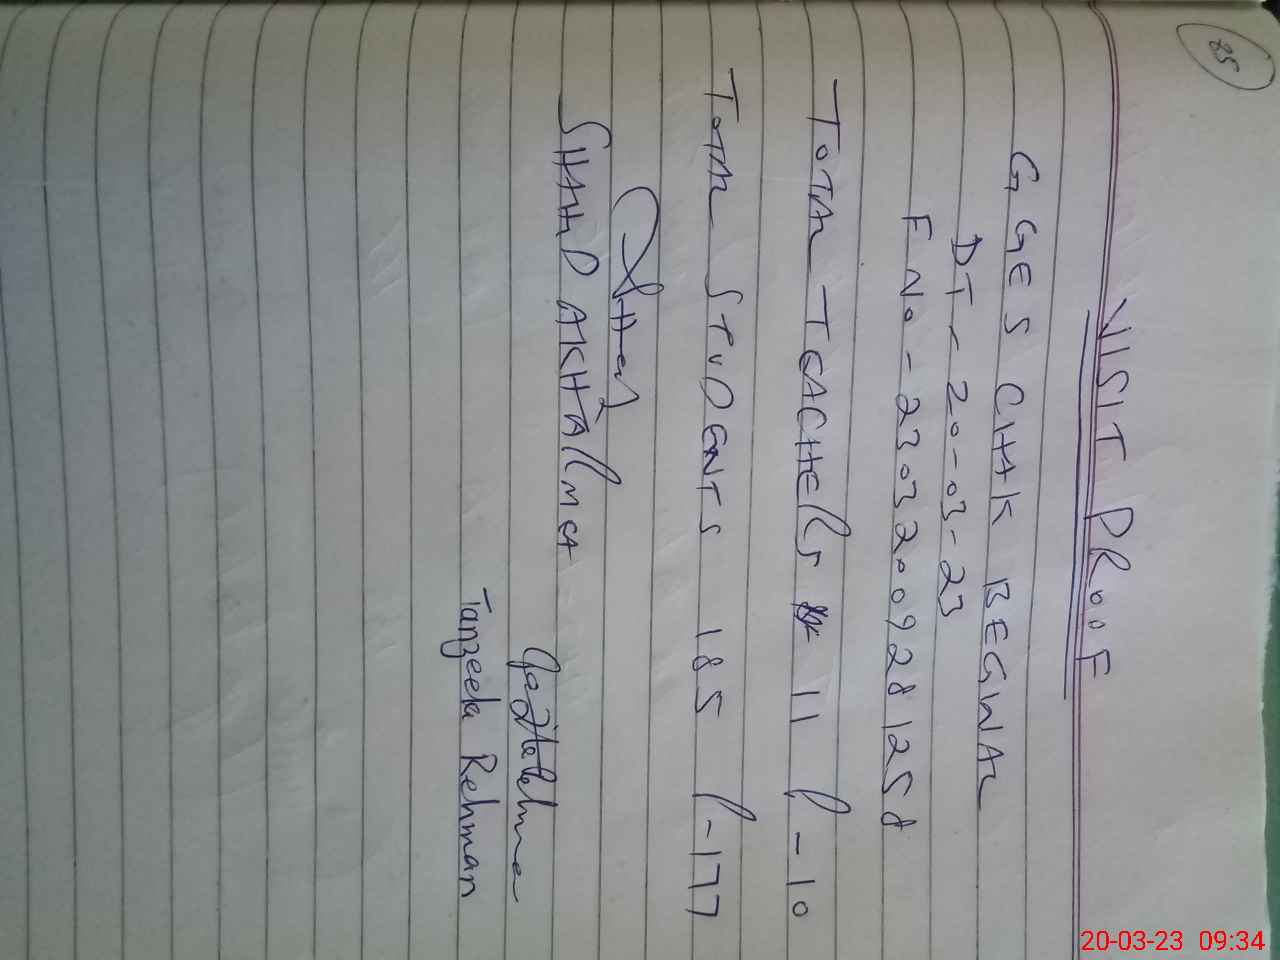 85
VISIT PROOF
GGES CHAK BEGWAL
DT - 20-03-23
F No - 23032009281258
TOTAL TEACHERS 11 P-10
TOTAL STUDENTS 185 P-177
SHAHID AKHTAR MEA
Tanzeela Rehman
20-03-23 09:34